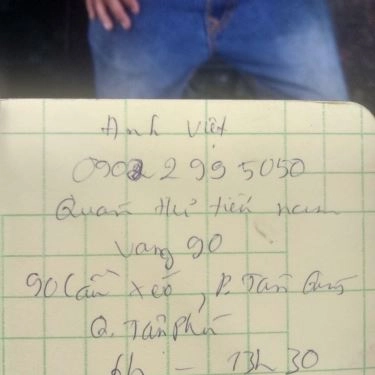 Anh Việt
0902 995050
Quán thư tiến nam
vang 90
90 Cầu Xéo, P. Tân Quý
Q. Tân Phú
6h - 13h30